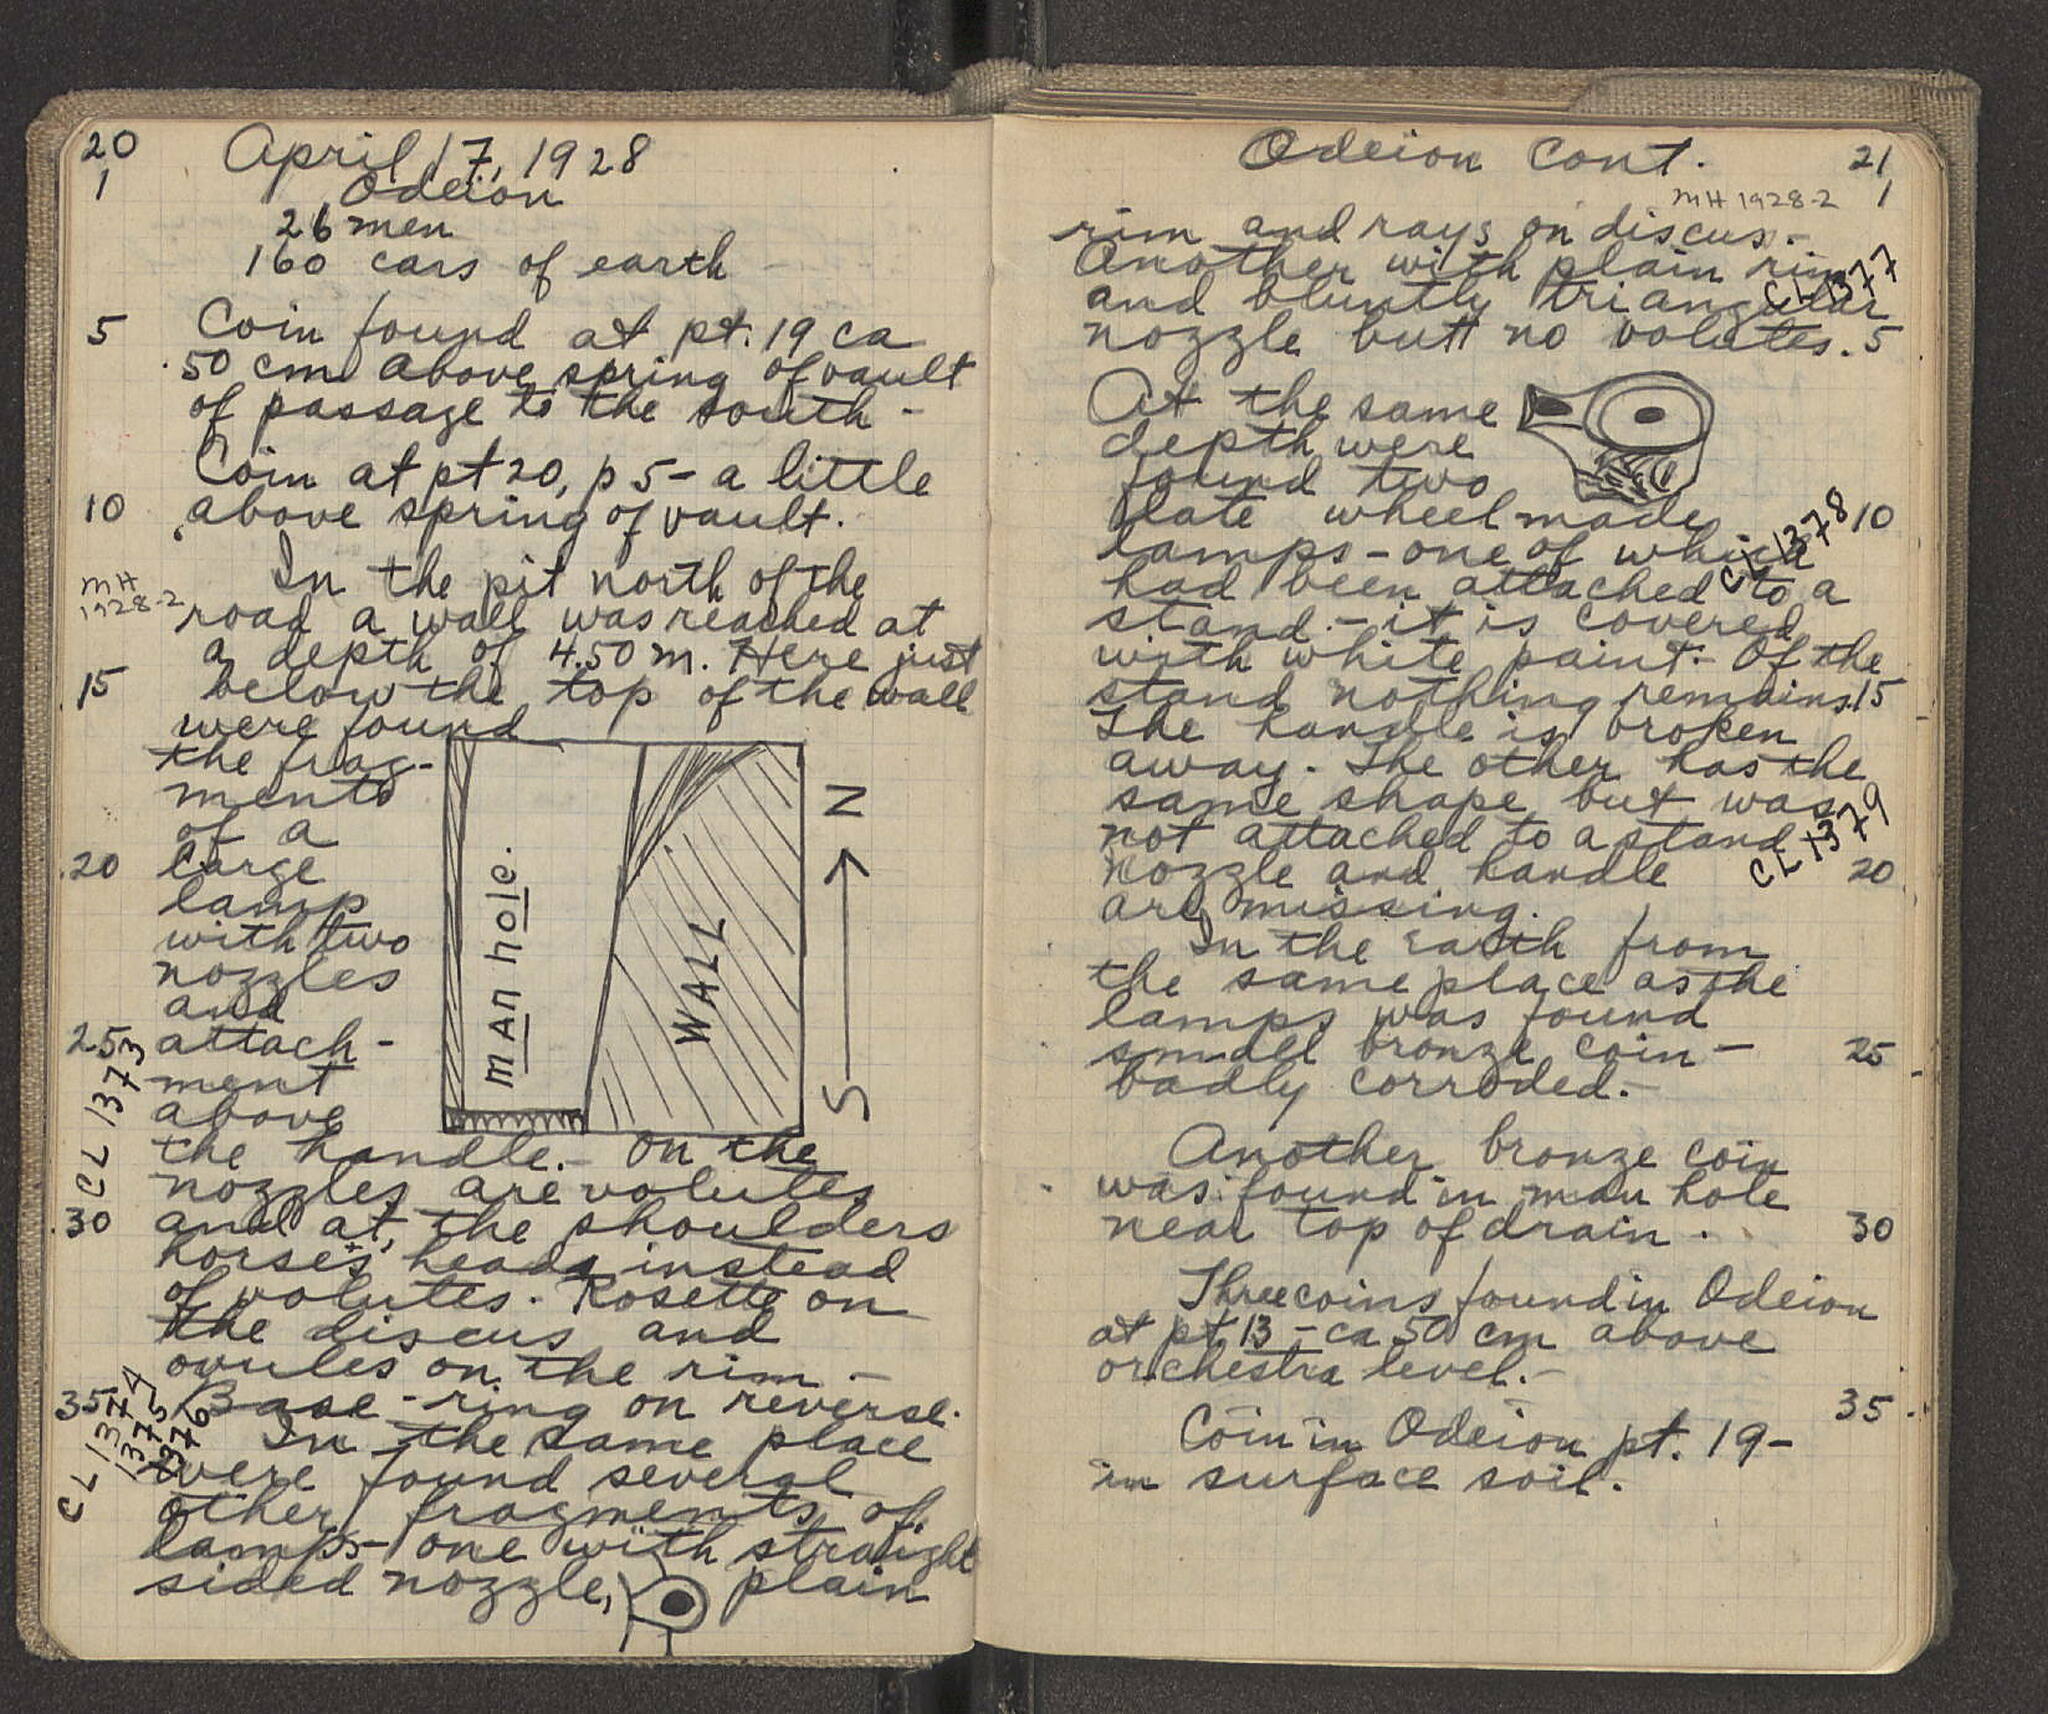 20
April 17, 1928
1
Odeion
26 men
160 cars of earth
5
Coin found at pt. 19 ca
.50 cm above spring of vault
of passage to the south -
Coin at pt 20, p 5 - a little
10
above spring of vault.
In the pit north of the
MH
1928-2
road a wall was reached at
a depth of 4.50 m. Here just
15
below the top of the wall
were found
the frag-
ments
of a
20
large
lamp
with two
nozzles
and
25
attach-
ment
above
CL 1373
man hole.
WALL
N
S
the handle. - On the
nozzles are volutes
30
and at the shoulders
horses heads instead
of volutes. Rosette on
the discus and
ovules on the rim -
35
Base-ring on reverse.
In the same place
CL 1374
1375
1376
were found several
other fragments of
lamps - one with straight
sided nozzle, plain
Odeion cont.
21
MH 1928-2
1
rim and rays on discus. -
Another with plain rim
CL 1377
and bluntly triangular
nozzle but no volutes.
5
At the same
depth were
found two
late wheelmade
10
lamps - one of which
CL 1378
had been attached to a
stand - it is covered
with white paint. Of the
stand nothing remains.
15
The handle is broken
away. The other has the
same shape but was
not attached to a stand
CL 1379
Nozzle and handle
20
are missing.
In the earth from
the same place as the
lamps was found
small bronze coin -
25
badly corroded. -
Another bronze coin
was found in man hole
near top of drain.
30
Three coins found in Odeion
at pt. 13 - ca 50 cm above
orchestra level. -
35
Coin in Odeion pt. 19 -
in surface soil.